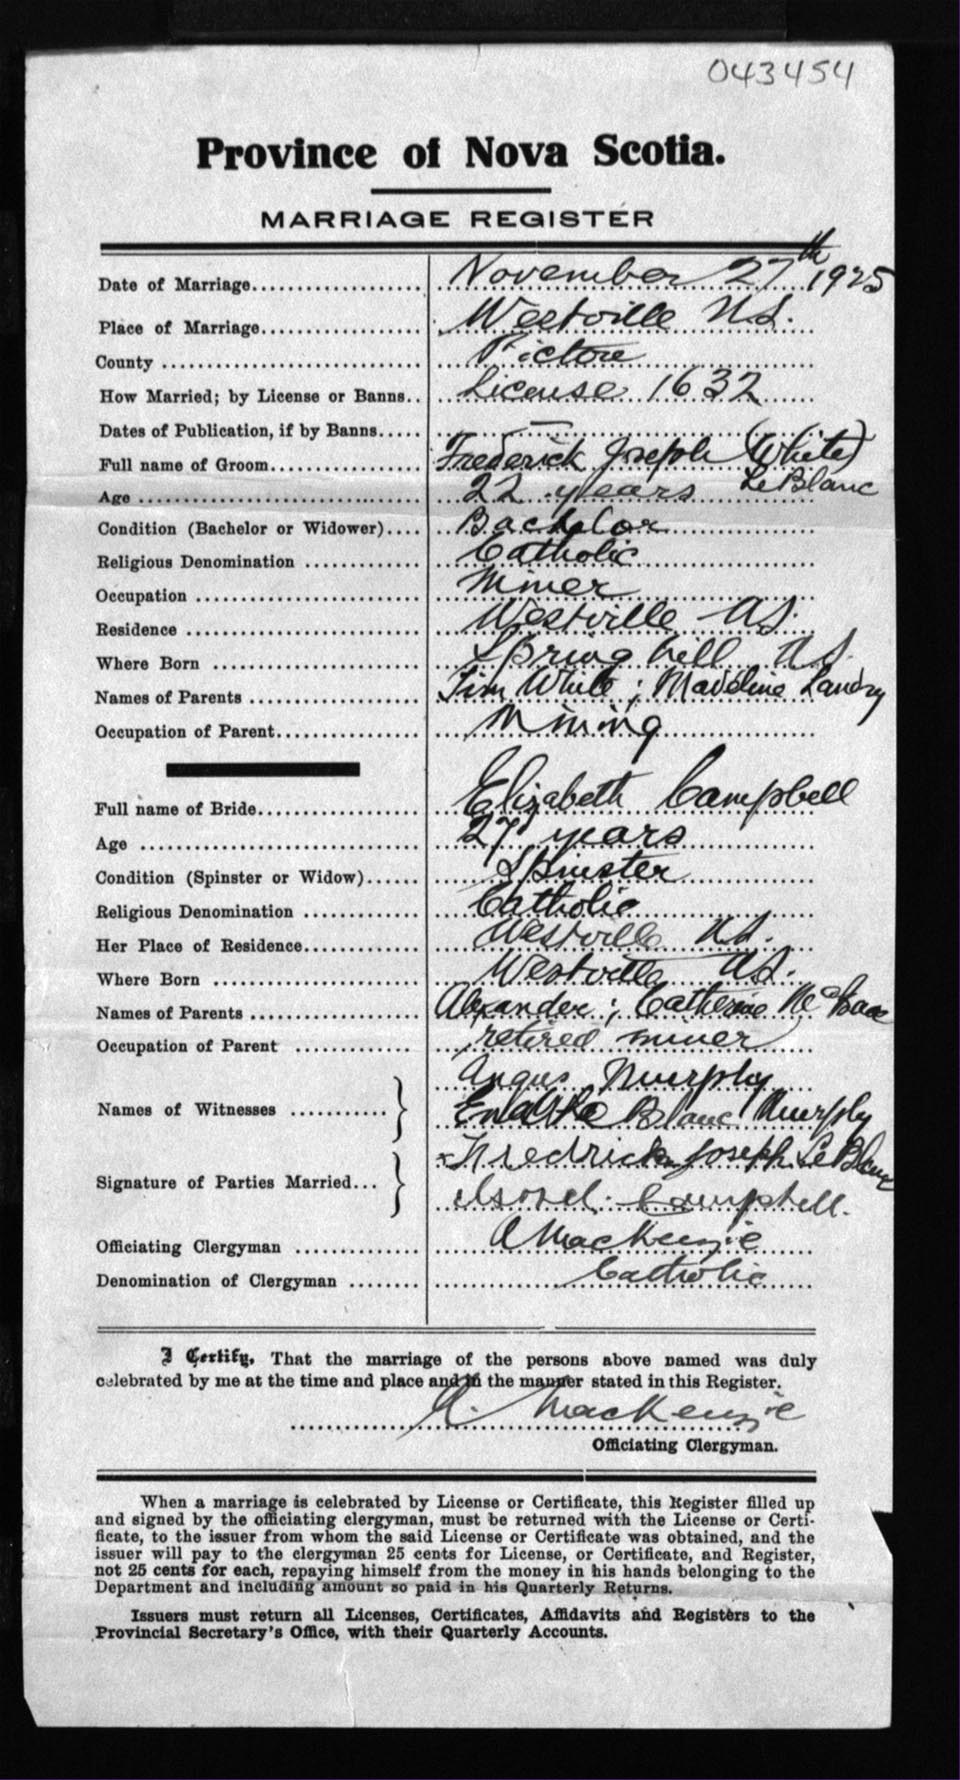 043454
Province of Nova Scotia.
MARRIAGE REGISTER
Date of Marriage.................... November 27th 1925
Place of Marriage................... Westville N.S.
County .............................. Pictou
How Married; by License or Banns.. License 1632
Dates of Publication, if by Banns..... —
Full name of Groom.................. Frederick Joseph (White)
LeBlanc
Age .................................. 22 years
Condition (Bachelor or Widower).... Bachelor
Religious Denomination ............. Catholic
Occupation .......................... Miner
Residence ........................... Westville N.S.
Where Born ........................ Springhill N.S.
Names of Parents ................... Jim White; Madeline Landry
Occupation of Parent................ Mining
Full name of Bride................... Elizabeth Campbell
Age ................................. 27 years
Condition (Spinster or Widow)...... Spinster
Religious Denomination ............. Catholic
Her Place of Residence.............. Westville N.S.
Where Born ........................ Westville N.S.
Names of Parents ................... Alexander; Catherine Mc
Occupation of Parent ............. retired miner
Names of Witnesses ........... } Angus Murphy
Blanc Murphy
Signature of Parties Married... } x Fredrick Joseph LeBlanc
Campbell.
Officiating Clergyman .............. A MacKenzie
Denomination of Clergyman ........ Catholic
I Certify, That the marriage of the persons above named was duly
celebrated by me at the time and place and in the manner stated in this Register.
A. MacKenzie
Officiating Clergyman.
When a marriage is celebrated by License or Certificate, this Register filled up
and signed by the officiating clergyman, must be returned with the License or Certi-
ficate, to the issuer from whom the said License or Certificate was obtained, and the
issuer will pay to the clergyman 25 cents for License, or Certificate, and Register,
not 25 cents for each, repaying himself from the money in his hands belonging to the
Department and including amount so paid in his Quarterly Returns.
Issuers must return all Licenses, Certificates, Affidavits and Registers to the
Provincial Secretary's Office, with their Quarterly Accounts.